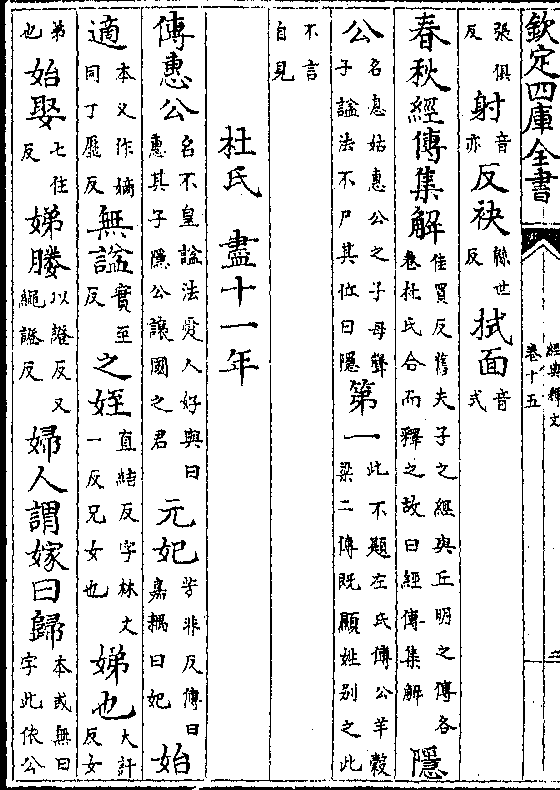 欽定四庫全書
經典釋文
卷十五
三
張俱反射音亦反袂緜世反拭面音式
春秋經傳集解佳買反舊夫子之經與丘明之傳各卷杜氏合而釋之故曰經傳集解隱
公名息姑惠公之子母聲子諡法不尸其位曰隱第一此不題左氏傳公羊榖梁二傳既顯姓别之此
不言自見
杜氏 盡十一年
傳惠公名不皇諡法愛人好與曰惠其子隱公讓國之君元妃芳非反傳曰嘉耦曰妃始
適本又作嫡同丁歷反無諡實至反之姪直結反字林丈一反兄女也娣也大計反女
弟也始娶七住反娣媵以證反又繩證反婦人謂嫁曰歸本或無曰字此依公